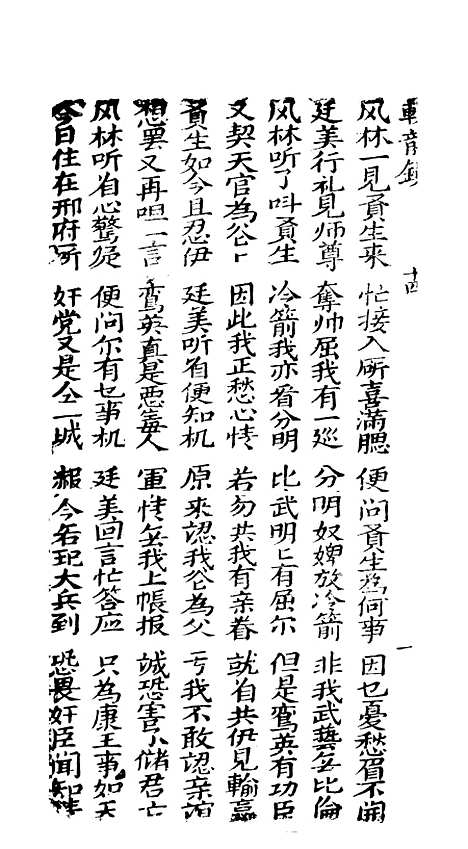 十四
风林一見貢生来 忙接入厛喜滿腮 便问貢生為何事 因乜憂愁眉不開
廷美行礼見师尊 奪帅屈我有一巡 分明奴婢放冷箭 非我武藝無比倫
风林听了叫貢生 冷箭我亦看分明 比武明匕有屈尔 但是鸾英有功臣
又契天官為公匕 因此我正愁心情 若勿共我有亲眷 就着共伊見輸贏
貢生如今且忍伊 廷美听着便知机 原来認我公為父 亏我不敢認亲誼
想罢又再呾一言 鸾英真是恶毒人 軍情無我上帳报 誠恐害 储君亡
风林听着心驚疑 便问尔有乜事机 廷美回言忙答应 只為康王事如天
今日住在邢府所 奸党又是仝一城 今若 大兵到 恐畏奸臣闻知